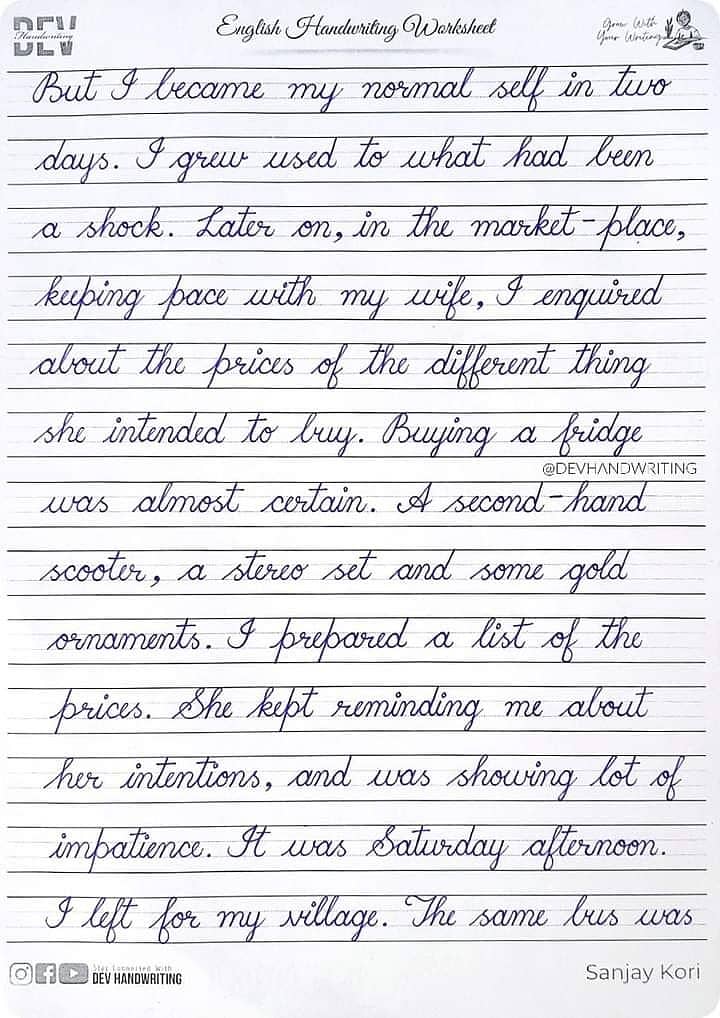 DEV
Handwriting
English Handwriting Worksheet
Grow With
Your Writing
But I became my normal self in two
days. I grew used to what had been
a shock. Later on, in the market-place,
keeping pace with my wife, I enquired
about the prices of the different thing
she intended to buy. Buying a fridge
@DEVHANDWRITING
was almost certain. A second-hand
scooter, a stereo set and some gold
ornaments. I prepared a list of the
prices. She kept reminding me about
her intentions, and was showing lot of
impatience. It was Saturday afternoon.
I left for my village. The same bus was
Stay Connected With
DEV HANDWRITING
Sanjay Kori